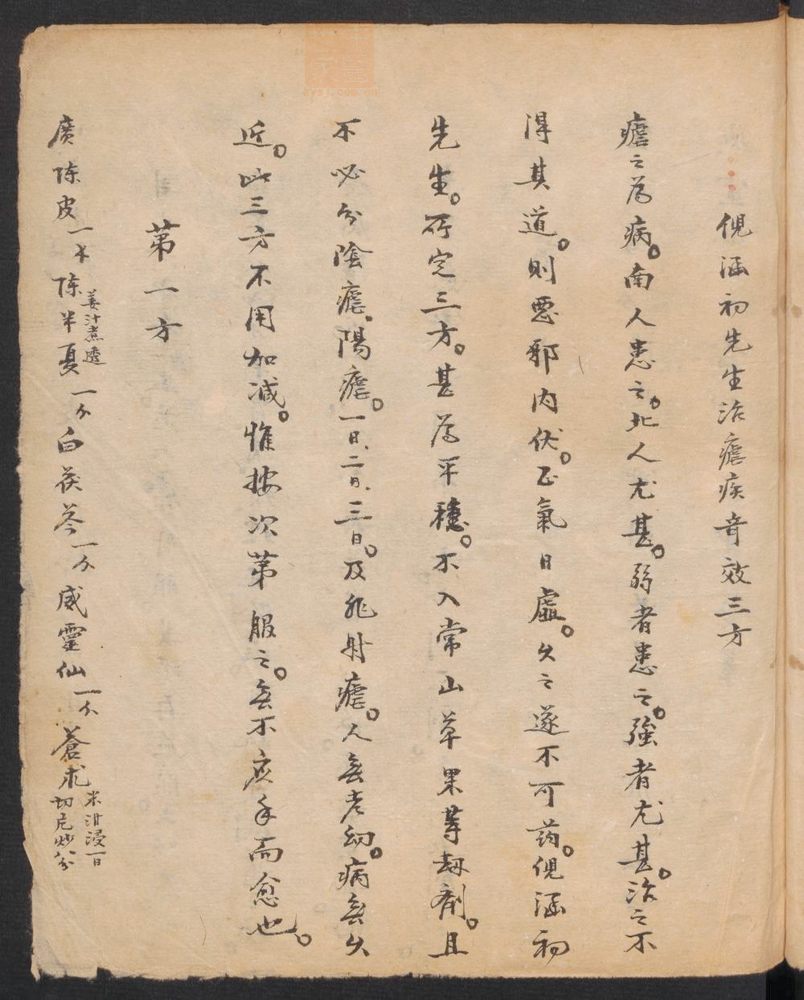 倪涵初先生治瘧疾奇效三方
瘧之為病。南人患之。北人尤甚。弱者患之。強者尤甚。治之不
得其道。則惡邪内伏。正氣日虛。久之遂不可藥。倪涵初
先生。所定三方。甚為平穩。不入常山草果等劫劑。且
不必分陰瘧。陽瘧。一日、二日、三日。及非時瘧。人無老幼。病無久
近。此三方不用加減。惟按次第服之。無不應手而愈也。
第一方
廣陳皮一
陳半夏姜汁煮透一
白茯苓一
威靈仙一
蒼朮米泔浸一日切片炒